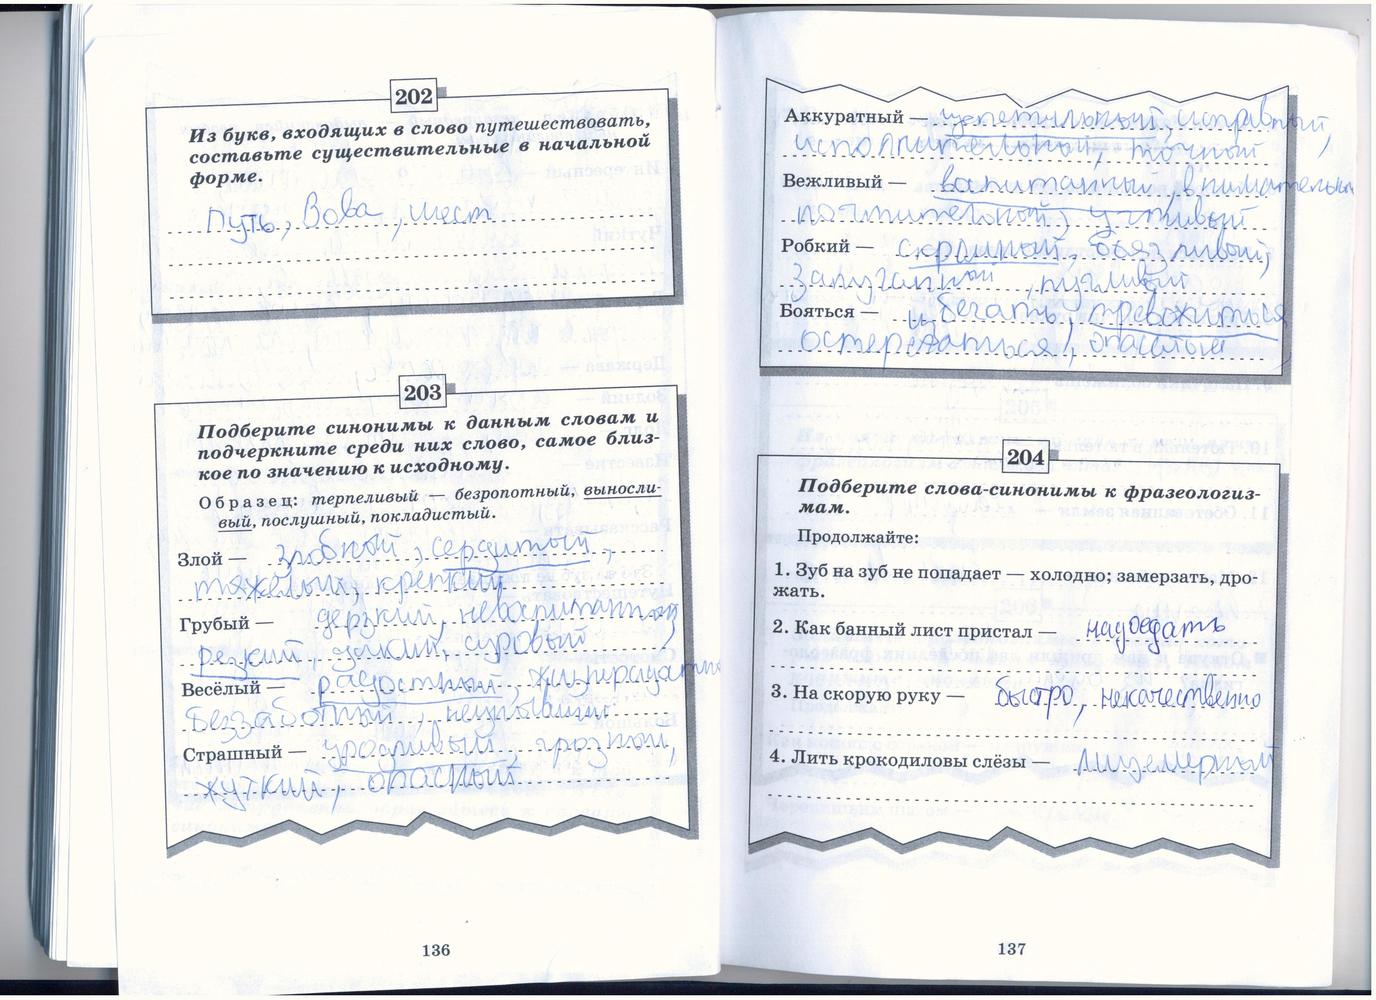 202
Из букв, входящих в слово путешествовать,
составьте существительные в начальной
форме.
Путь, Вова, шест
203
Подберите синонимы к данным словам и
подчеркните среди них слово, самое близ-
кое по значению к исходному.
Образец: терпеливый — безропотный, выносли-
вый, послушный, покладистый.
Злой — злобный, сердитый,
тяжёлый, крепкий
Грубый — дерзкий, невоспитанный,
резкий, дикий, суровый
Весёлый — радостный, жизнерадостный
беззаботный, неунывающий
Страшный — уродливый, грозный,
жуткий, опасный
136
Аккуратный — исправный,
исполнительный, точный
Вежливый — воспитанный, внимательный
почтительный, учтивый
Робкий — скромный, боязливый,
запуганный, пугливый
Бояться — избегать, тревожиться
остерегаться, опасаться
204
Подберите слова-синонимы к фразеологиз-
мам.
Продолжайте:
1. Зуб на зуб не попадает — холодно; замерзать, дро-
жать.
2. Как банный лист пристал — надоедать
3. На скорую руку — быстро, некачественно
4. Лить крокодиловы слёзы — лицемерный
137